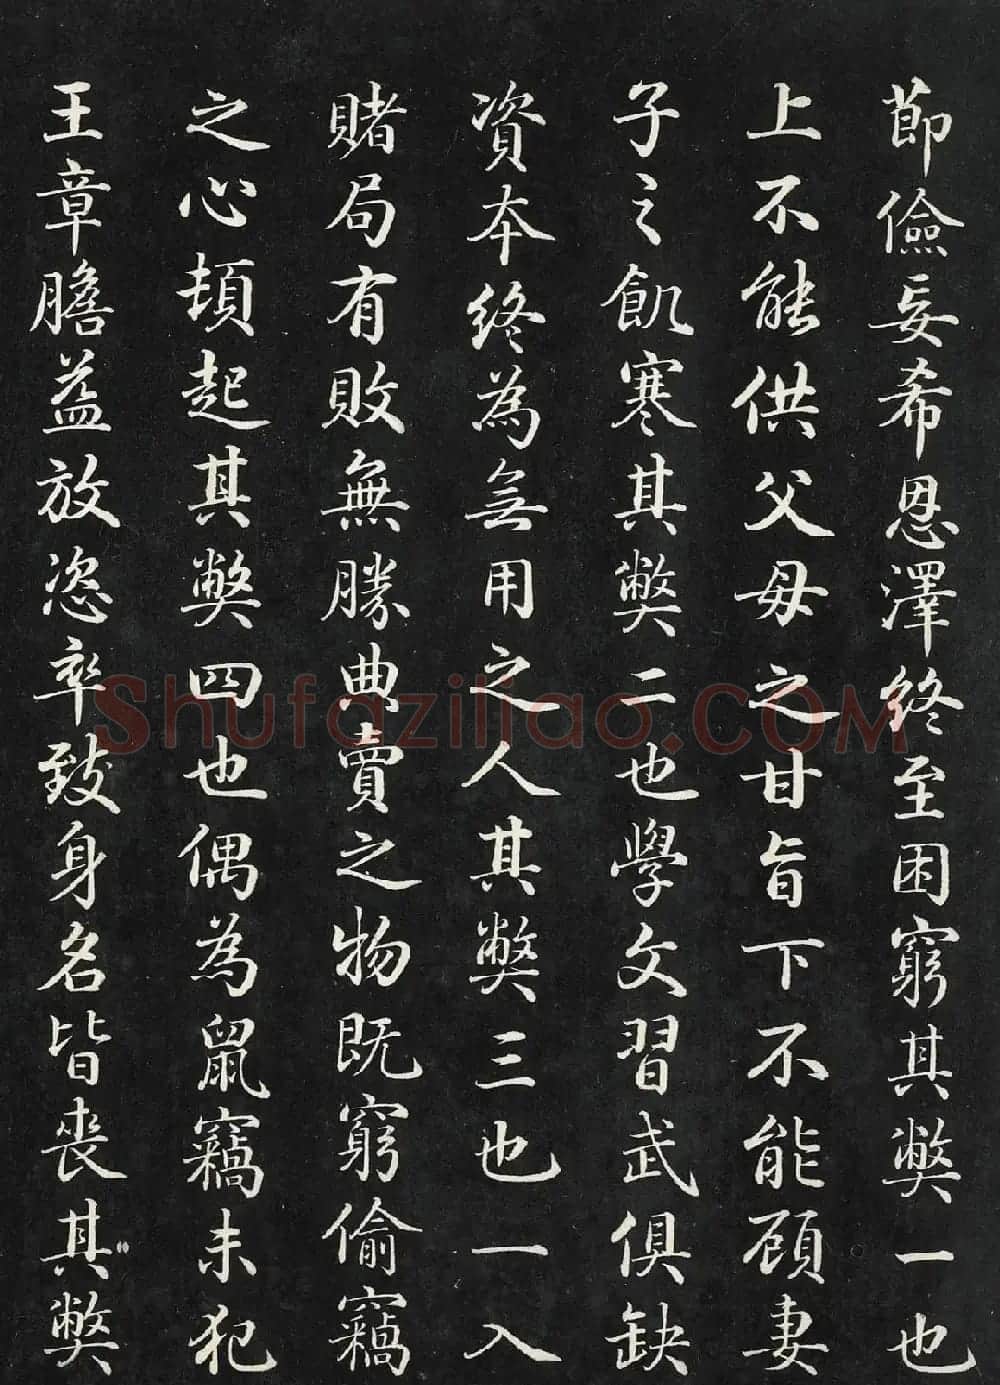 節儉妄希恩澤終至困窮其獘一也
上不能供父母之甘旨下不能顧妻
子之飢寒其獘二也學文習武俱缺
資本終為無用之人其獘三也一入
賭局有敗無勝典賣之物既窮偷竊
之心頓起其獘四也偶為鼠竊未犯
王章膽益放恣卒致身名皆喪其獘
Shufaziliao.COM